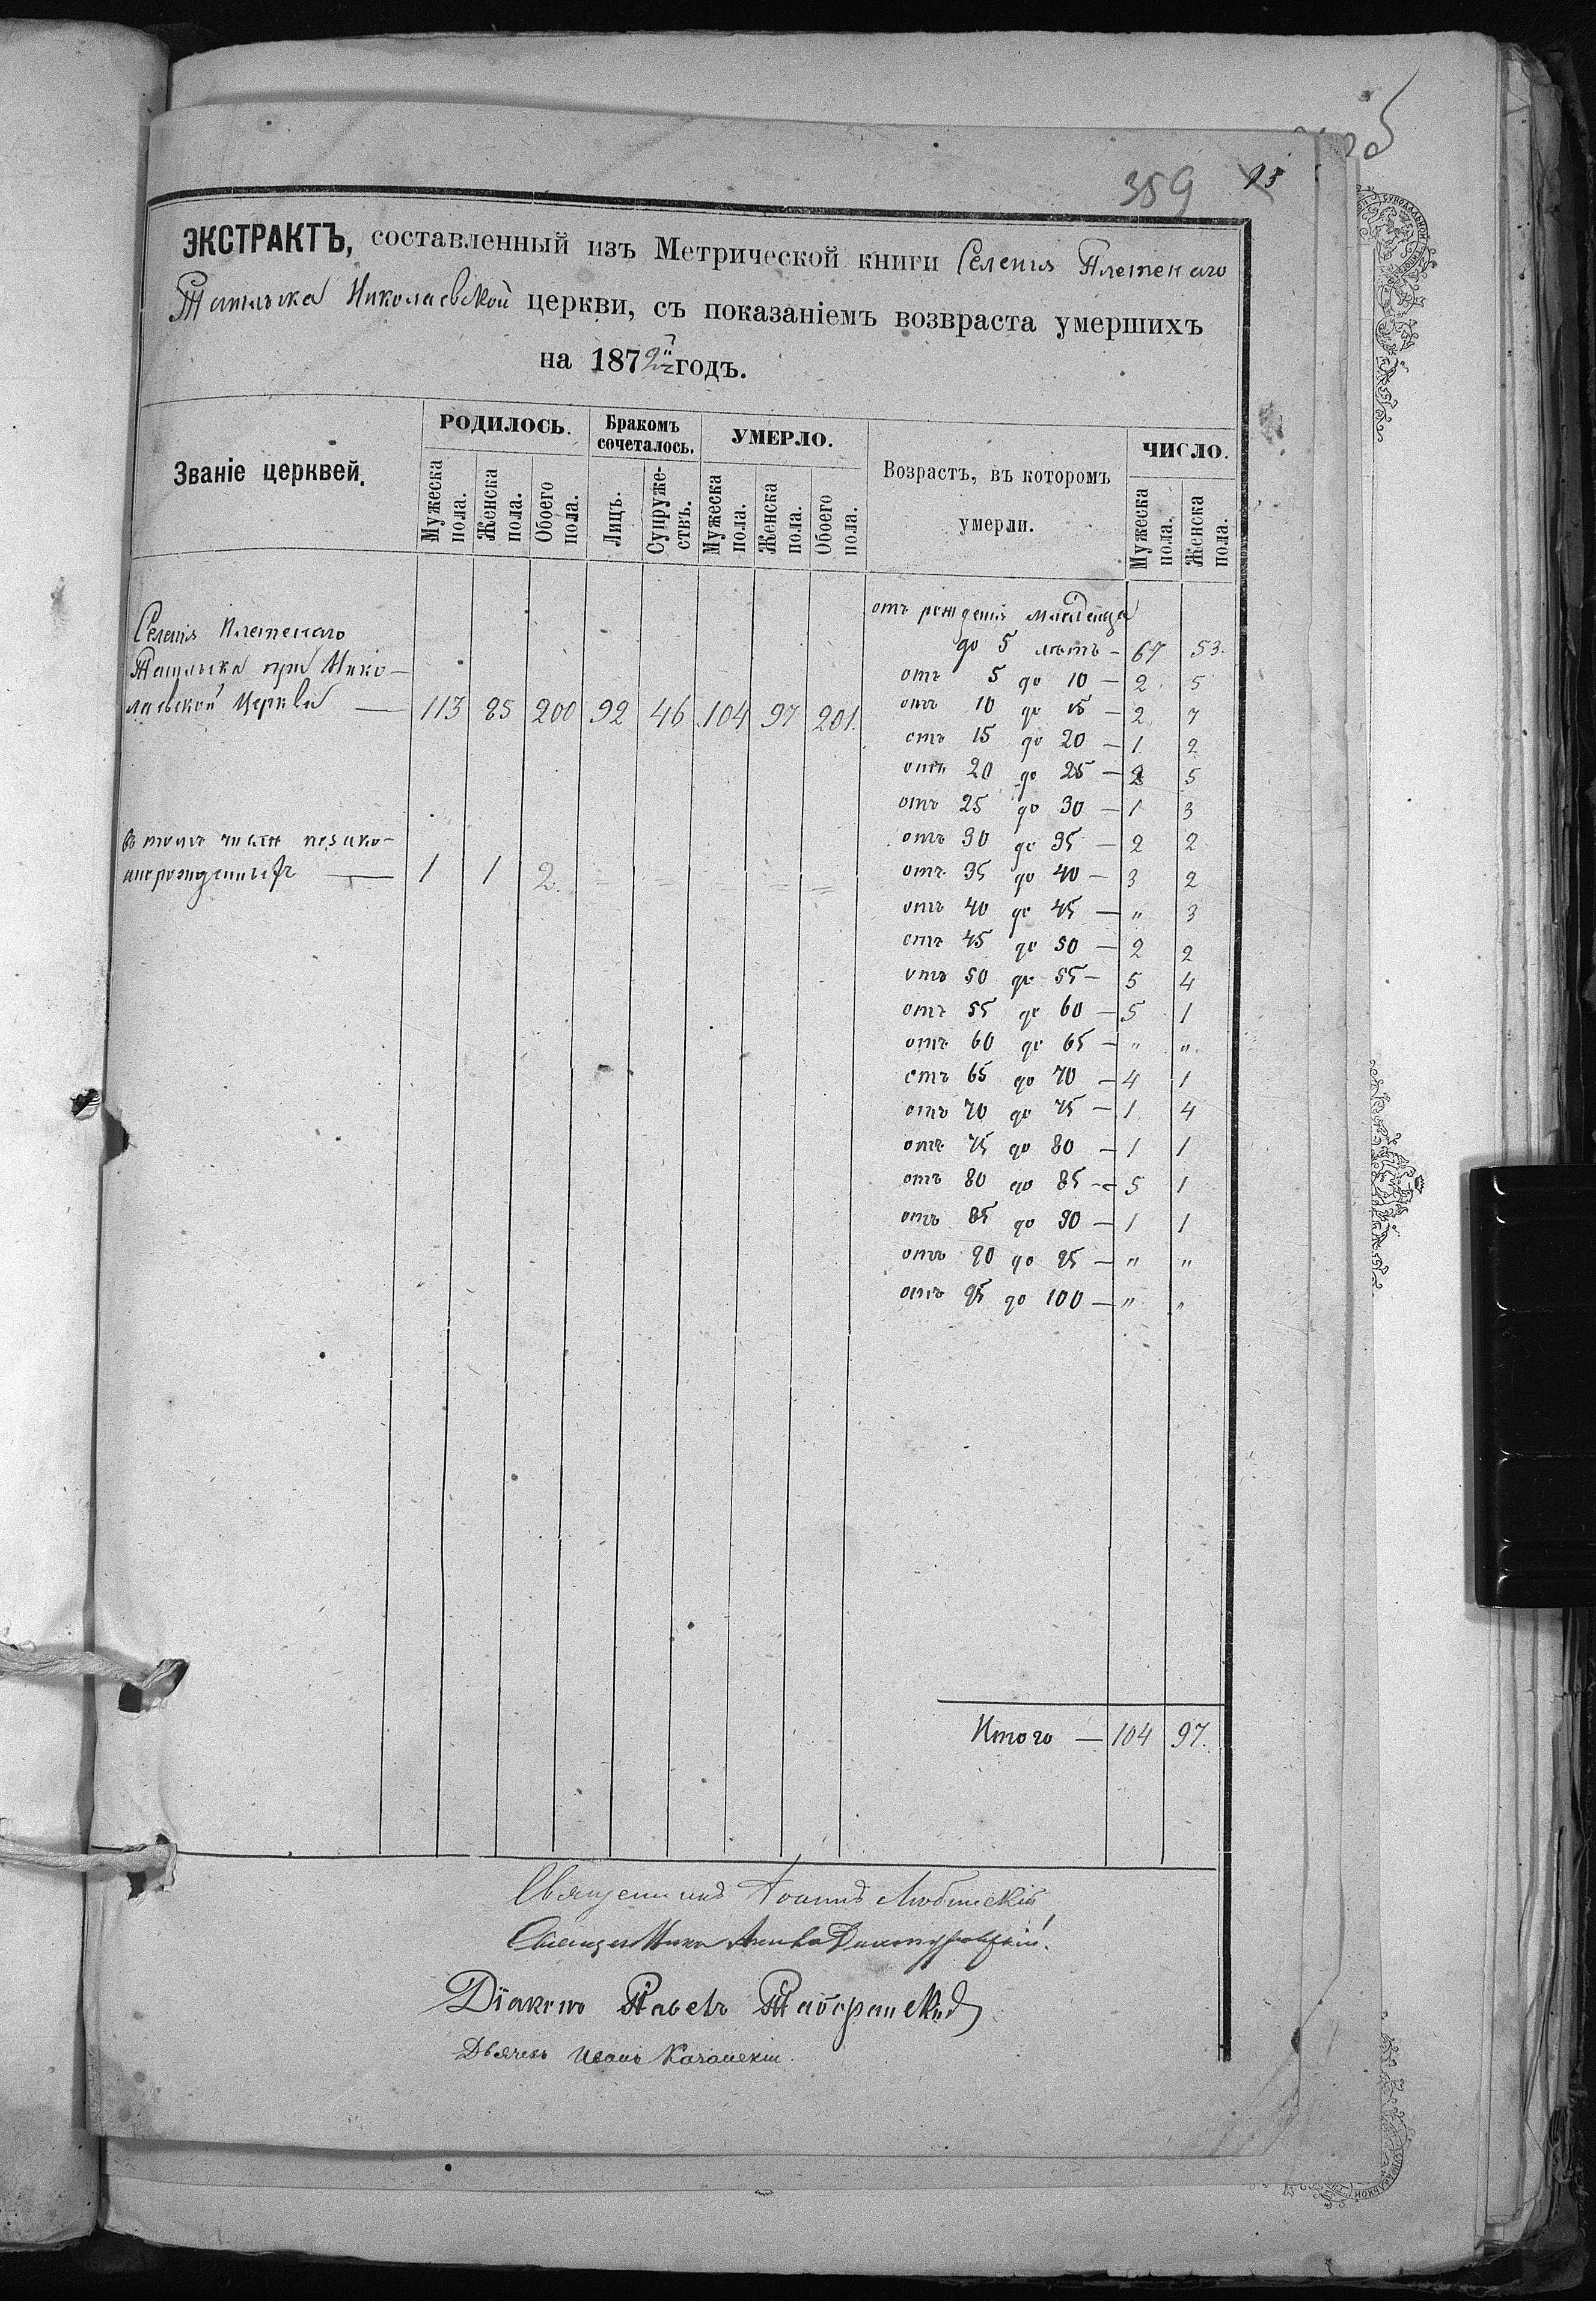 359 93
ЭКСТРАКТЪ, составленный изъ Метрической книги Селенія Плетенаго
Ташлыка Николаевской церкви, съ показаніемъ возвраста умершихъ
на 1872й годъ.
Званіе церквей. РОДИЛОСЬ. Бракомъ сочеталось. УМЕРЛО. Возрастъ, въ которомъ умерли. ЧИСЛО.
Мужеска пола. Женска пола. Обоего пола. Лицъ. Супружествъ. Мужеска пола. Женска пола. Обоего пола. Мужеска пола. Женска пола.
Селенія Плетенаго
Ташлыка при Нико-
лаевской Церкви — 113 85 200 92 46 104 97 201.
въ томъ числѣ незако-
норожденныхъ — 1 1 2. = = = = =
отъ рожденія младенца
до 5 лѣтъ — 67 53.
отъ 5 до 10 — 2 5
отъ 10 до 15 — 2 7
отъ 15 до 20 — 1 2
отъ 20 до 25 — 2 5
отъ 25 до 30 — 1 3
отъ 30 до 35 — 2 2
отъ 35 до 40 — 3 2
отъ 40 до 45 — „ 3
отъ 45 до 50 — 2 2
отъ 50 до 55 — 5 4
отъ 55 до 60 — 5 1
отъ 60 до 65 — „ „
отъ 65 до 70 — 4 1
отъ 70 до 75 — 1 4
отъ 75 до 80 — 1 1
отъ 80 до 85 — 5 1
отъ 85 до 90 — 1 1
отъ 90 до 95 — „ „
отъ 95 до 100 — „ „
Итого — 104 97.
Священникъ Іоаннъ Любинскій
Священникъ
Діаконъ Павелъ
Дьячекъ Иванъ Качанскій.